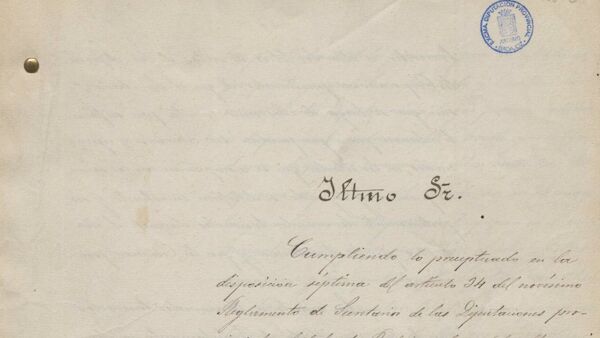 EXCMA. DIPUTACIÓN PROVINCIAL
ARCHIVO
Iltmo Sr.
Cumpliendo lo preceptuado en la
disposición séptima del artículo 34 del novísimo
Reglamento de Secretarios de las Diputaciones pro-